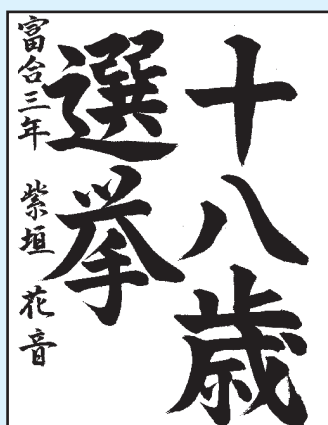 十八歳
選挙
富合三年 紫垣 花音